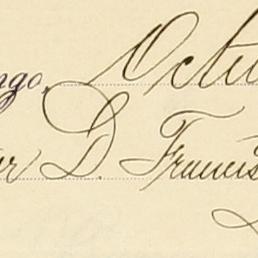 ngo, Octu
or D. Francis